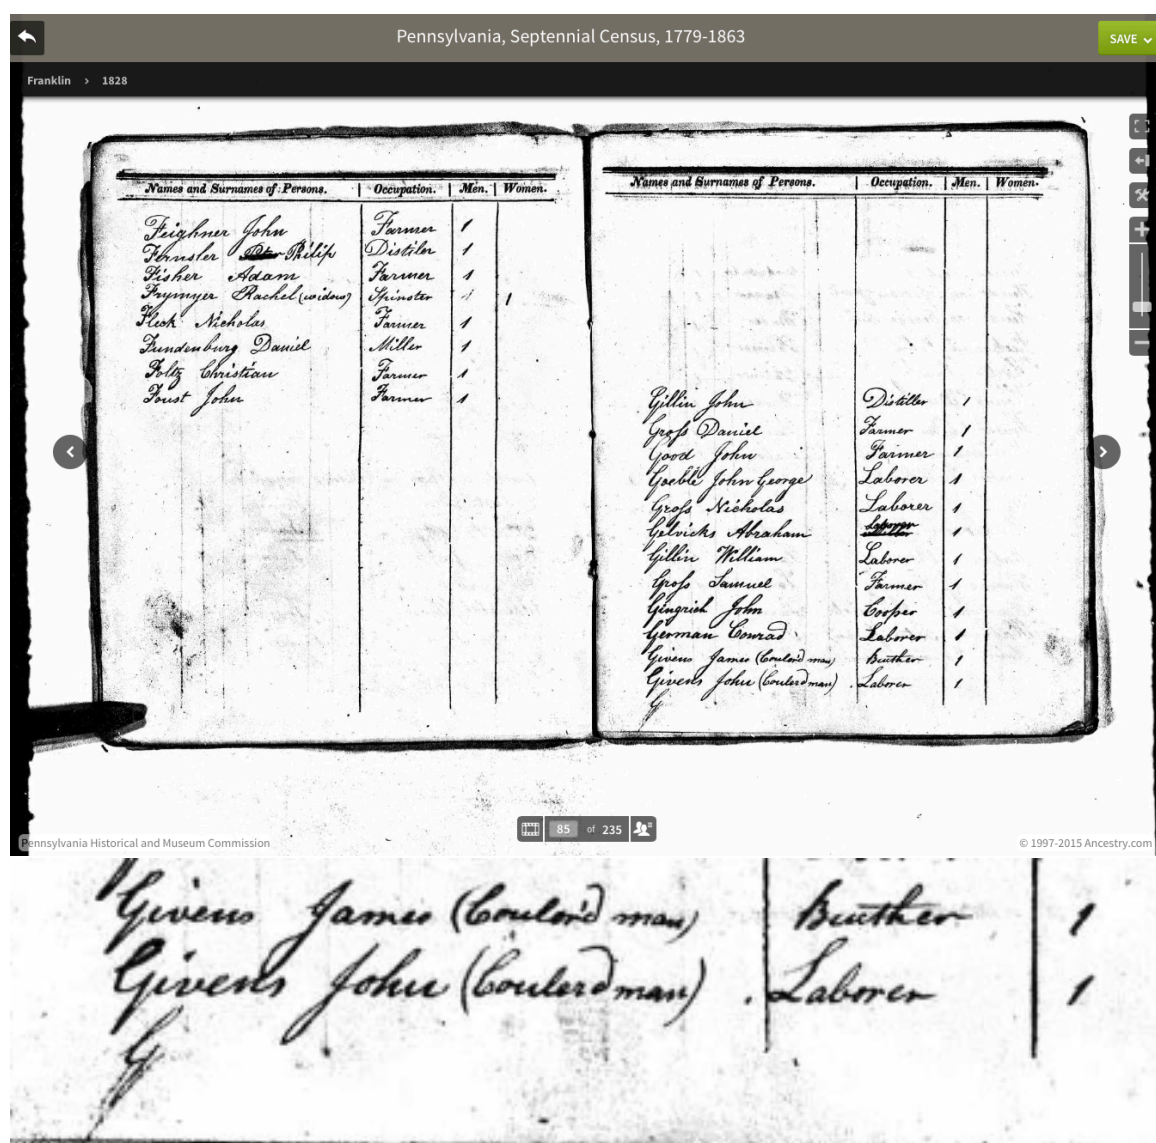 Pennsylvania, Septennial Census, 1779-1863
SAVE
Franklin > 1828
Names and Surnames of Persons. Occupation. Men. Women.
Feighner John Farmer 1
Fernsler Philip Distiler 1
Fisher Adam Farmer 1
Frymyer Rachel (widow) Spinster 1
Fleck Nicholas Farmer 1
Fundenburg Daniel Miller 1
Foltz Christian Farmer 1
Foust John Farmer 1
Names and Surnames of Persons. Occupation. Men. Women.
Gillin John Distiller 1
Groſs Daniel Farmer 1
Good John Farmer 1
Goeble John George Laborer 1
Groſs Nicholas Laborer 1
Gelvicks Abraham 1
Gillin William Laborer 1
Groſs Samuel Farmer 1
Gingrich John Cooper 1
German Conrad Laborer 1
Givens James (Coulor'd man) Buther 1
Givens John (Coulerd man) Laborer 1
G
85 of 235
Pennsylvania Historical and Museum Commission
© 1997-2015 Ancestry.com
Givens James (Coulor'd man) Buther 1
Givens John (Coulerd man) Laborer 1
G